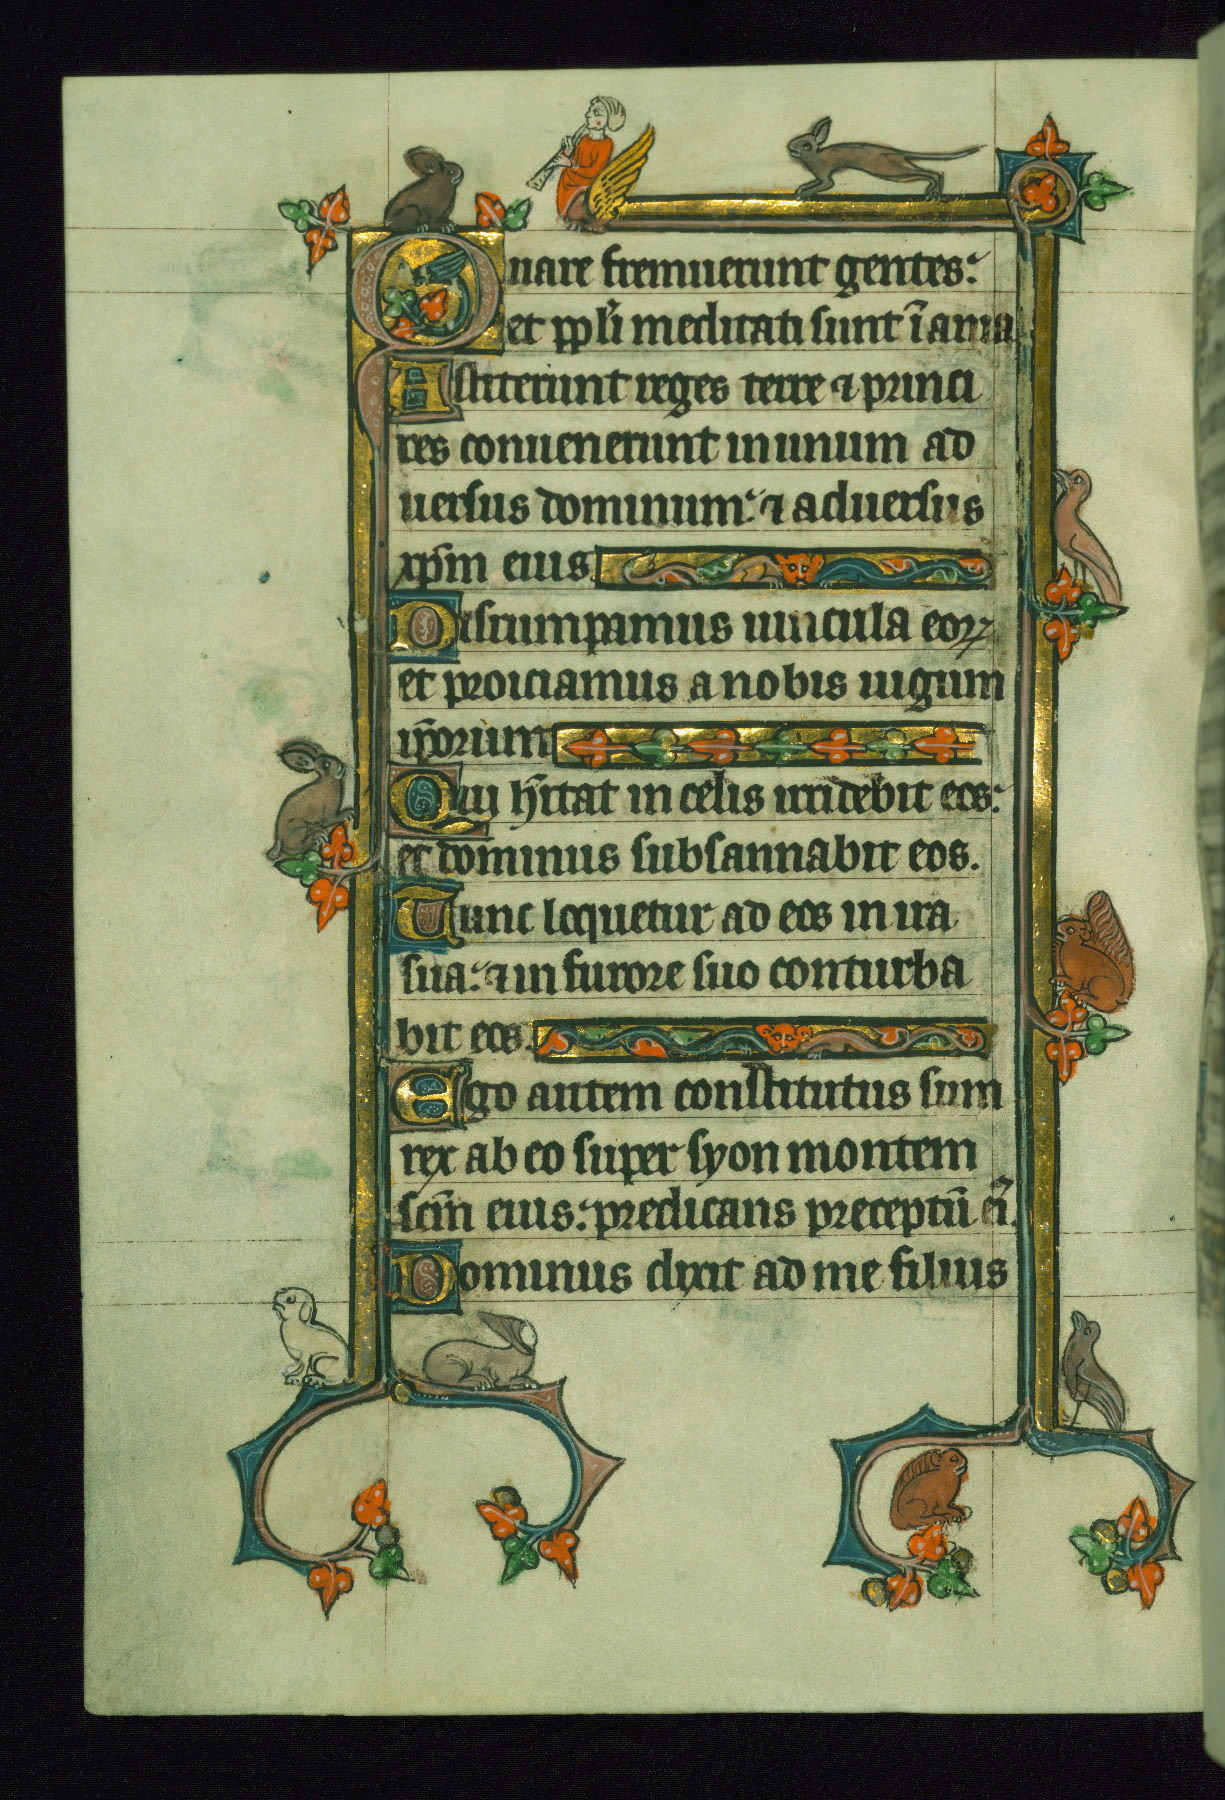 Quare fremuerunt gentes:
et ppl̃i meditati sunt ĩ ania
Astiterunt reges terre ⁊ princi
pes conuenerunt in unum ad
uersus dominum: ⁊ aduersus
xp̃m eius.
Dirumpamus uincula eoꝝ
et proiciamus a nobis iugum
ip̃orum
Qui h̃itat in celis irridebit eos:
et dominus subsannabit eos.
Tunc loquetur ad eos in ira
sua: ⁊ in furore suo conturba
bit eos.
Ego autem constitutus sum
rex ab eo super syon montem
scm̃ eius: predicans preceptũ ei᷒.
Dominus dixit ad me filius